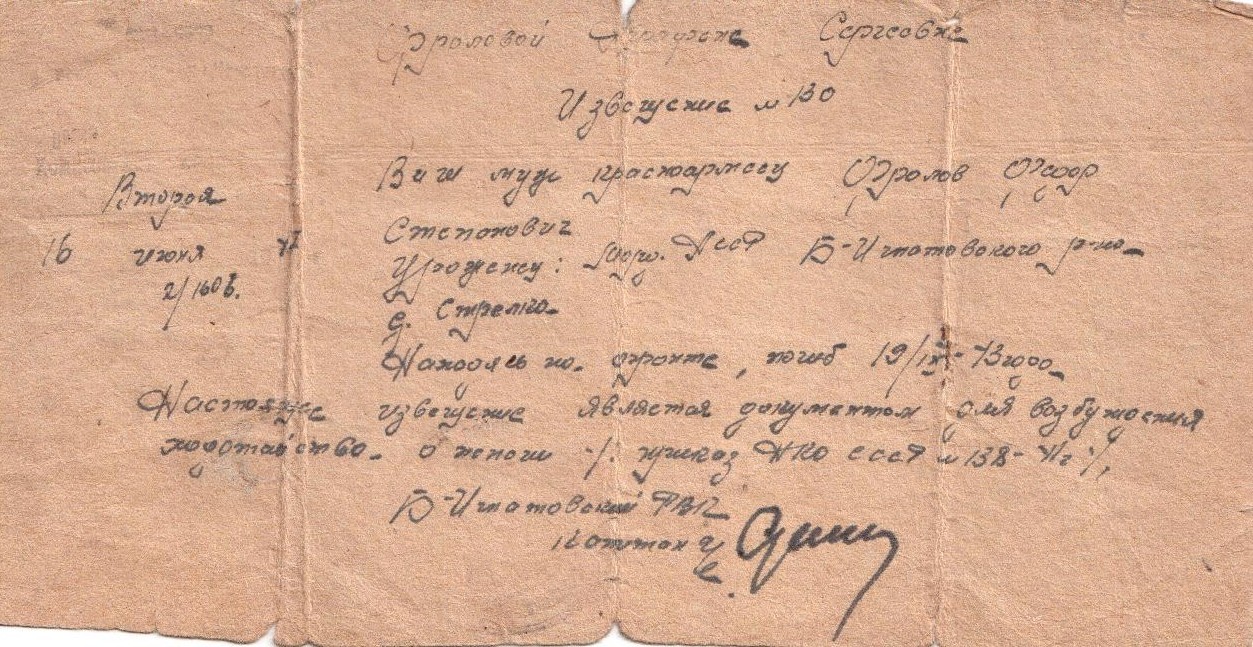 Фроловой Сергеевне
Извещение № 130
Ваш муж красноармеец Фролов Федор
Степонович
Вторая
16 июня
Уроженец: Морд. АССР Б-Игнатовского р-на
д. Стрелка
Находясь на фронте, погиб 19/IX-43 года
Настоящее извещение является документом для возбуждения
ходотайства о пенсии -/. приказ НКО СССР № 138-
Б-Игнатовский РВК
Капитан